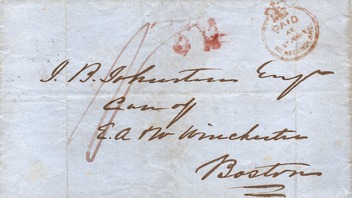 PAID
AT
J. B. Johnston Esqr
Care of
E. A. & W. Winchester
Boston